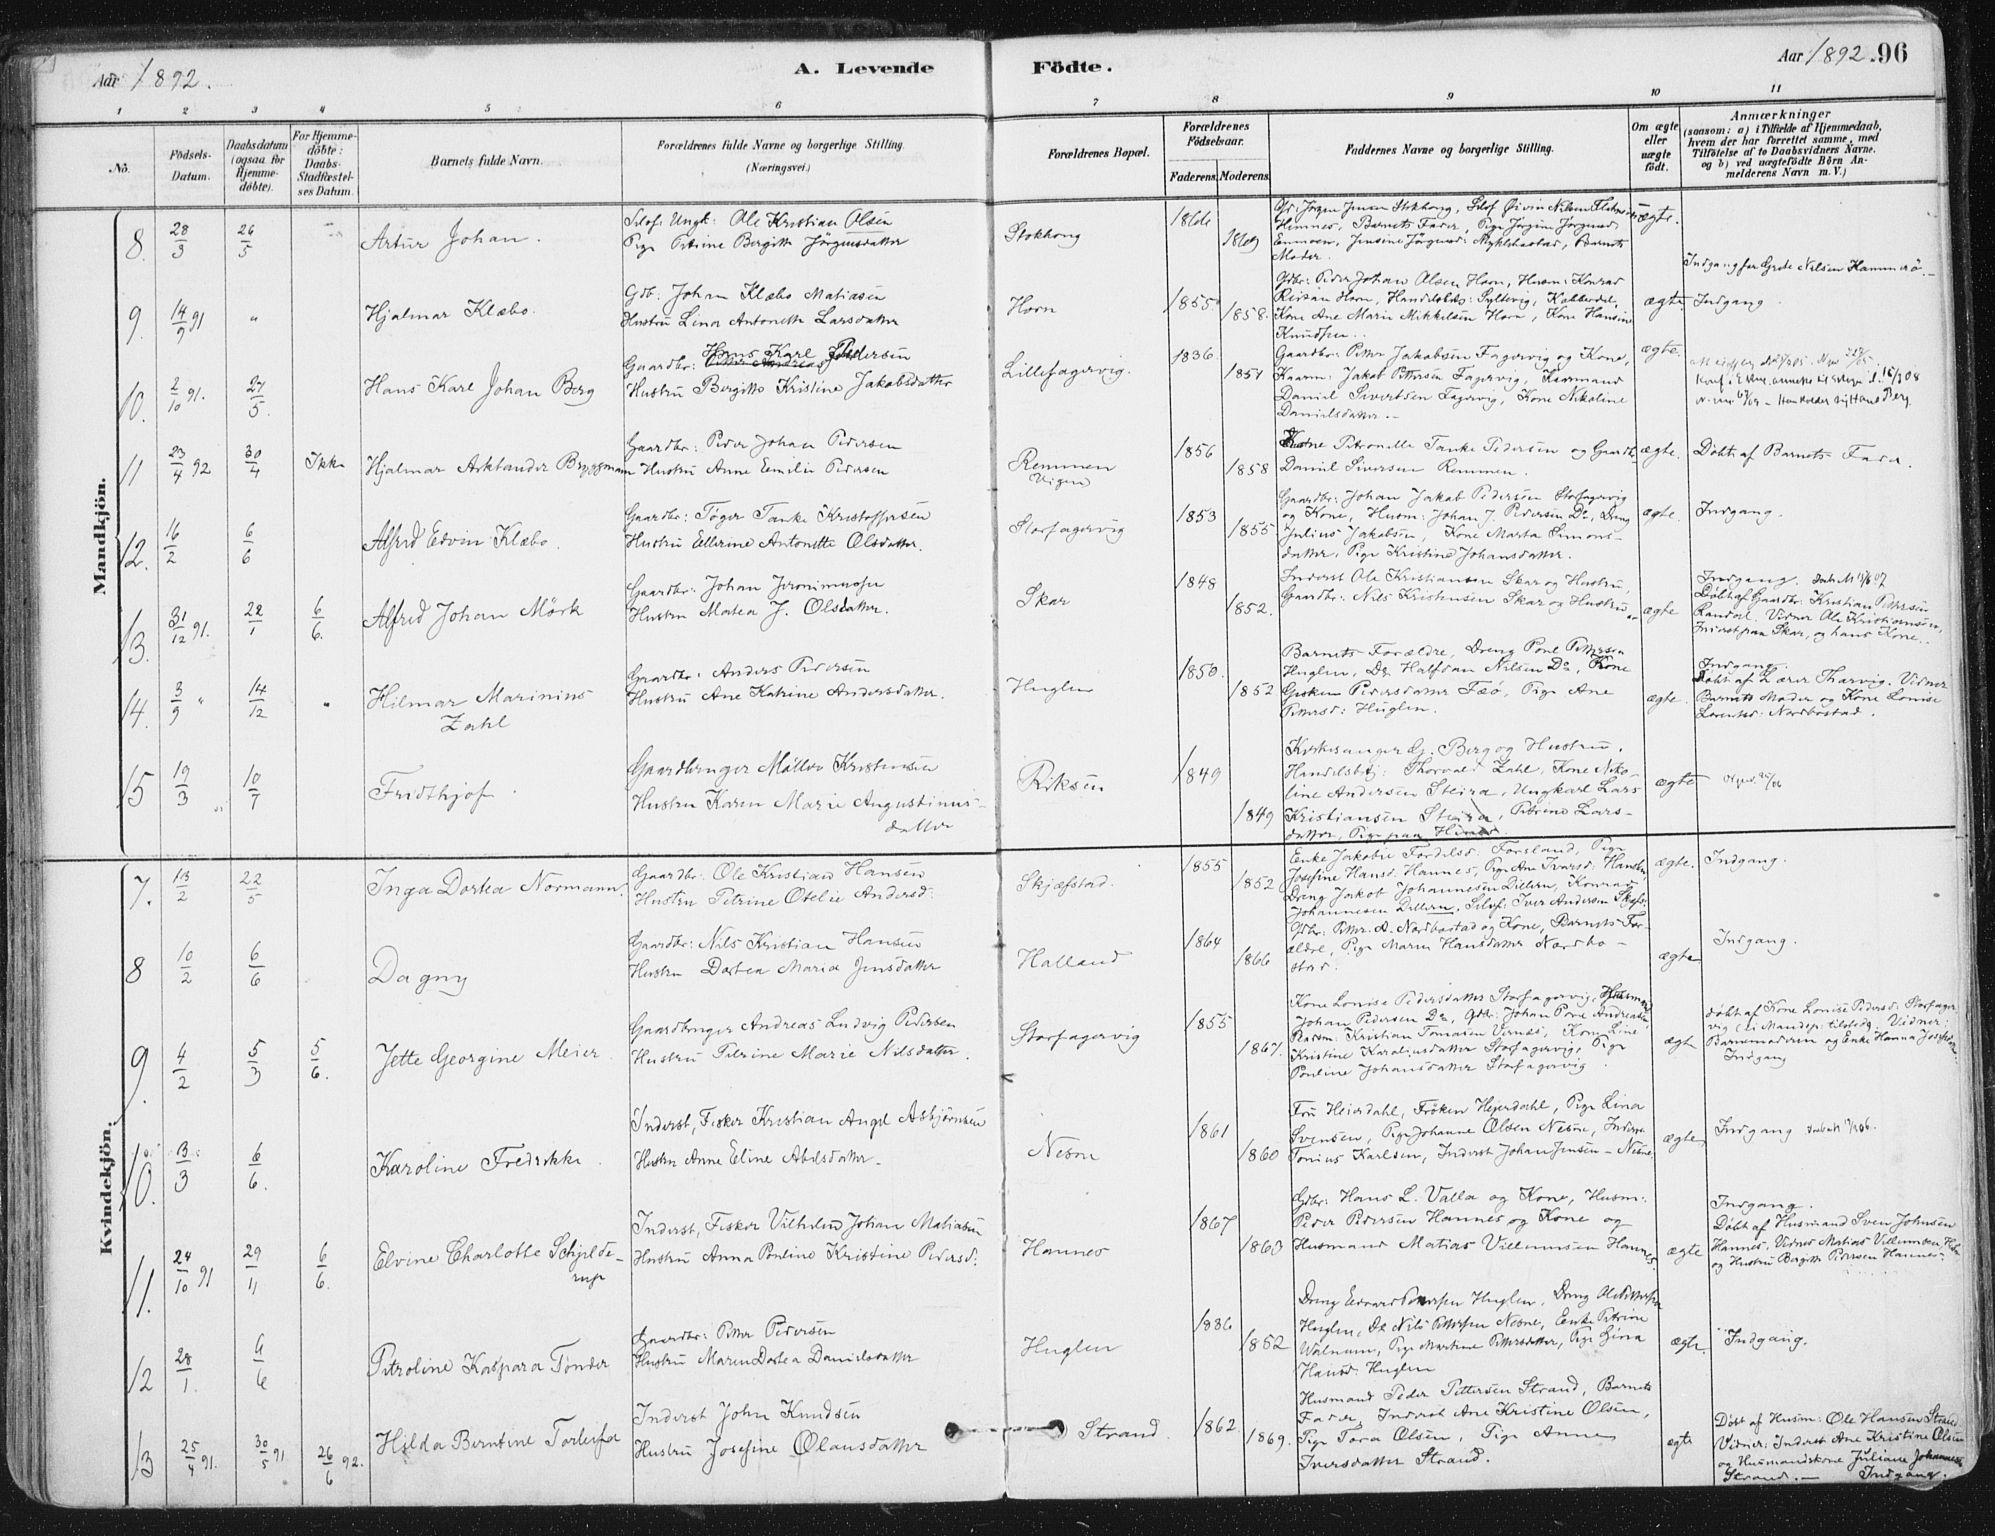 Aar 1892.
A. Levende Födte.
Aar 1892. 96
1 2 3 4 5 6 7 8 9 10 11
No.
Födsels-Datum.
Daabsdatum (ogsaa for Hjemme-döbte).
For Hjemme-döbte: Daabs-Stadfæstel-ses Datum.
Barnets fulde Navn.
Forældrenes fulde Navne og borgerlige Stilling. (Næringsvei.)
Forældrenes Bopæl.
Forældrenes Födselsaar.
Faderens. Moderens.
Faddernes Navne og borgerlige Stilling.
Om ægte eller uægte födt.
Anmærkninger
(saasom: a) i Tilfælde af Hjemmedaab,
hvem der har forrettet samme, med
Tilföielse af to Daabsvidners Navne,
og b) ved uægtefödte Börn An-
melderens Navn m. V.)
Mandkjön.
8. 28/3 26/5
Artur Johan.
Ungk: Ole Kristian Olsen
Pige Petrine Bergitte Jörgensdatter
Stokhong
1866 1869
Barnets Fader, Pige
Moder.
ægte.
Indgang for Grete Nilsen Hammerö.
9. 14/9 91 "
Hjalmar Klæbo.
Gdb: Johan Klæbo Matiasen
Hustru Lina Antonette Larsdatter
Horn
1855 1858.
Gdbr: Peder Johan Olsen Horn, Husm: Konrad
Kone Ane Marie Mikkelsen Horn, Kone Hansine
Knudsen.
ægte.
Indgang.
10. 2/10 91. 27/5.
Hans Karl Johan Berg
Hans Karl Pedersen
Gaardbr:
Hustru Bergitte Kristine Jakobsdatter
Lillefagervig.
1836. 1851
Gaardbr: Petter Jakobsen Fagervig og Kone,
Kaarm: Jakob Pettersen Fagervig, Kaarmand
Daniel Sivertsen Fagervig, Kone Nikoline
Danielsdatter.
ægte.
11 23/4 92 30/4 Ikke
Hjalmar Arktander Bryggmann
Gaardbr: Peder Johan Pedersen
Hustru Anne Emilie Pedersen
Remmen
Vigen
1856 1858
Kone Petronelle Tanke Pedersen og Gaardb.
Daniel Siversen Remmen.
ægte.
Döbt af Barnets Fader.
12. 16/2 6/6
Alfred Edvin Klæbo.
Gaardbr: Töger Tanke Kristoffersen
Hustru Ellerine Antonette Olsdatter.
Storfagervig
1853 1855
Gaardbr: Johan Jakob Pedersen Storfagervig
og Kone, Husm: Johan J. Pedersen Do, Dreng
Julius Jakobsen, Kone Marta Simons-
datter, Pige Kristine Johansdatter.
ægte.
Indgang.
13. 31/12 91. 22/1 6/6.
Alfred Johan Mörk
Gaardbr: Johan Jeronimussen
Hustru Matea J. Olsdatter.
Skar
1848 1852.
Inderst Ole Kristiansen Skar og Hustru,
Gaardbr: Nils Kristensen Skar og Hustru
ægte
Indgang.
Döbt af Gaardbr: Kristian Pettersen
Randal. Vidner Ole Kristiansen,
Inderst paa Skar, og hans Kone.
14. 3/9 " 14/12 "
Hilmar Marinius
Zahl
Gaardbr: Anders Pedersen
Hustru Ane Katrine Andersdatter.
Huglen
1850. 1852
Barnets Forældre, Dreng Pone Pettersen
Huglen, Do Halfdan Nilsen Do, Kone
Gjeskin Pedersdatter Fæö, Pige Ane
Pettersd: Huglen.
ægte.
Indgang.
Döbt af Lærer Tharvig. Vidner
Barnets Moder og Kone Lovise
Lorentsd: Nordbostad.
15 19/3 10/7
Fridthjof.
Gaardbruger Möllov Kristensen
Hustru Karen Marie Augustinus-
datter
Riksen
1849 1849
Kirkesanger G. Berg og Hustru,
Handelsbetj: Thorvald Zahl, Kone Niko-
line Andersen Steira, Ungkarl Lars
Kristiansen Steira, Petrine Lars-
datter, Pige paa
ægte
Kvindekjön.
7. 13/2 22/5
Inga Dortea Normann.
Gaardbr: Ole Kristian Hansen
Hustru Petrine Otelie Andersd:
Skjæfstad.
1855 1852
Enke Jakobie Fordelsd: Forsland, Pige
Josefine Hansd. Hannes, Pige Ane Iversd. Hansen,
Dreng Jakob Johannesen Dillern, Konrad
Johannesen Dillern, Iver Andersen Skjæfs.
ægte.
Indgang.
8 10/2 6/6
Dagny
Gaardbr: Nils Kristian Hansen
Hustru Dortea Maria Jensdatter
Halland
1864 1866
Gdbr: Petter A. Nordbostad og Kone, Barnets For-
ældre, Pige Maren Hansdatter Nordbo-
stad.
ægte
Indgang.
9. 4/2 5/3 5/6.
Jette Georgine Meier.
Gaardbruger Andreas Ludvig Pedersen
Hustru Petrine Marie Nilsdatter.
Storfagervig
1855 1867.
Kone Lovise Pedersdatter Storfagervig, Husmand
Johan Pedersen Do, Gdbr: Johan Pone Andreassen
Kaarm: Kristian Tomasen Vernæs, Kone Line
Kristine Karoliusdatter Storfagervig, Pige
Pouline Johansdatter Storfagervig.
ægte
döbt af Kone Lovise Pedersd: Storfager
vig (ei Mandsp: tilstede). Vidner:
Barnemoderen og Enke Hanna Josefsen
Indgang
10. 3/3 6/6.
Karoline Fredrikke.
Inderst, Fisker Kristian Angel Asbjörnsen
Hustru Anne Eline Abelsdatter.
Nesne
1861 1860
Fru Heierdahl, Fröken Heierdahl, Pige Lina
Svensen, Pige Johanne Olsen Nesne, Inderst
Tonius Karlsen, Inderst Johan Jensen - Nesne
ægte
Indgang
11. 24/10 91 29/11 6/6.
Elvine Charlotte Schjelde-
rup
Inderst, Fisker Vilhelm Johan Matiasen
Hustru Anna Pouline Kristine Pedersd:
Hannes
1867 1863
Gdbr: Hans L. Valla og Kone, Husm:
Peder Pedersen Hannes og Kone og
Husmand Matias Villumsen Hannes.
ægte
Indgang.
Döbt af Husmand Sven Johnsen
Hannes, Vidner Matias Villumsen,
og Hustru Bergitte Pedersen Hannes.
12 28/1. 6/6
Petroline Kaspara Tönder
Gaardbr: Petter Pedersen
Hustru Maren Dortea Danielsdatter
Huglen
1836 1852
Dreng Edvard Pettersen Huglen, Dreng Ole Pettersen
Huglen, Do Nils Pettersen Nesne, Enke Petrine
Walnum, Pige Martine Pettersdatter, Pige Gina
Hansd: Huglen
ægte.
Indgang.
13 25/4 91. 30/5 91 26/6 92.
Hilda Berntine Torleifsa
Inderst John Knudsen
Hustru Josefine Olausdatter
Strand.
1862 1869.
Husmand Peder Pettersen Strand, Barnets
Fader, Inderst Ane Kristine Olsen,
Pige Tora Olsen, Pige Anne
Iversdatter Strand.
ægte
Döbt af Husm: Ole Hansen Strand
Vidner: Inderst Ane Kristine Olsen
og Husmandskone Juliane Johannes
Strand. - Indgang.